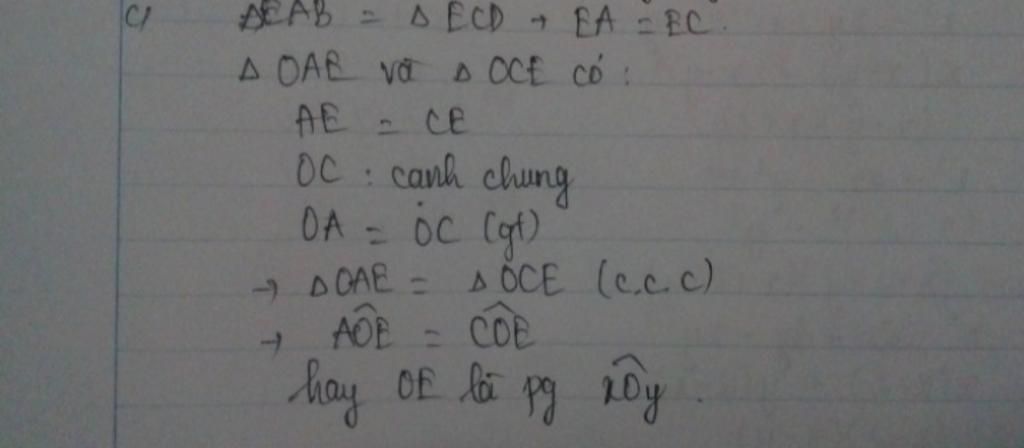 c) ΔEAB = ΔECD → EA = EC.
Δ OAE và Δ OCE có :
AE = CE
OC : cạnh chung
OA = OC (gt)
→ ΔOAE = ΔOCE (c.c.c)
→ AÔE = CÔE
hay OE là pg xÔy.